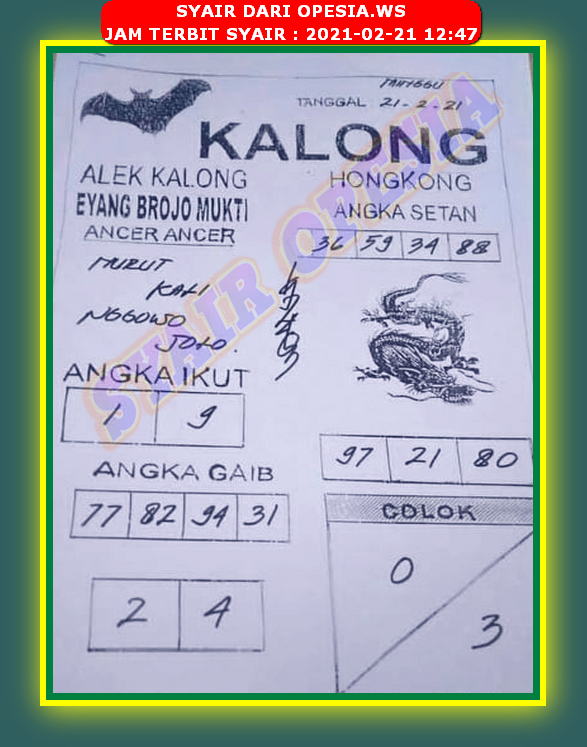 SYAIR DARI OPESIA.WS
JAM TERBIT SYAIR : 2021-02-21 12:47
MINGGU
TANGGAL 21-2-21
KALONG
ALEK KALONG
EYANG BROJO MUKTI
ANCER ANCER
HONGKONG
ANGKA SETAN
36 59 34 88
MURUT
KALI
NGGOWO
JOLO.
ANGKA IKUT
1 9
97 21 80
ANGKA GAIB
77 82 94 31
COLOK
0
3
2 4
SYAIR OPESIA